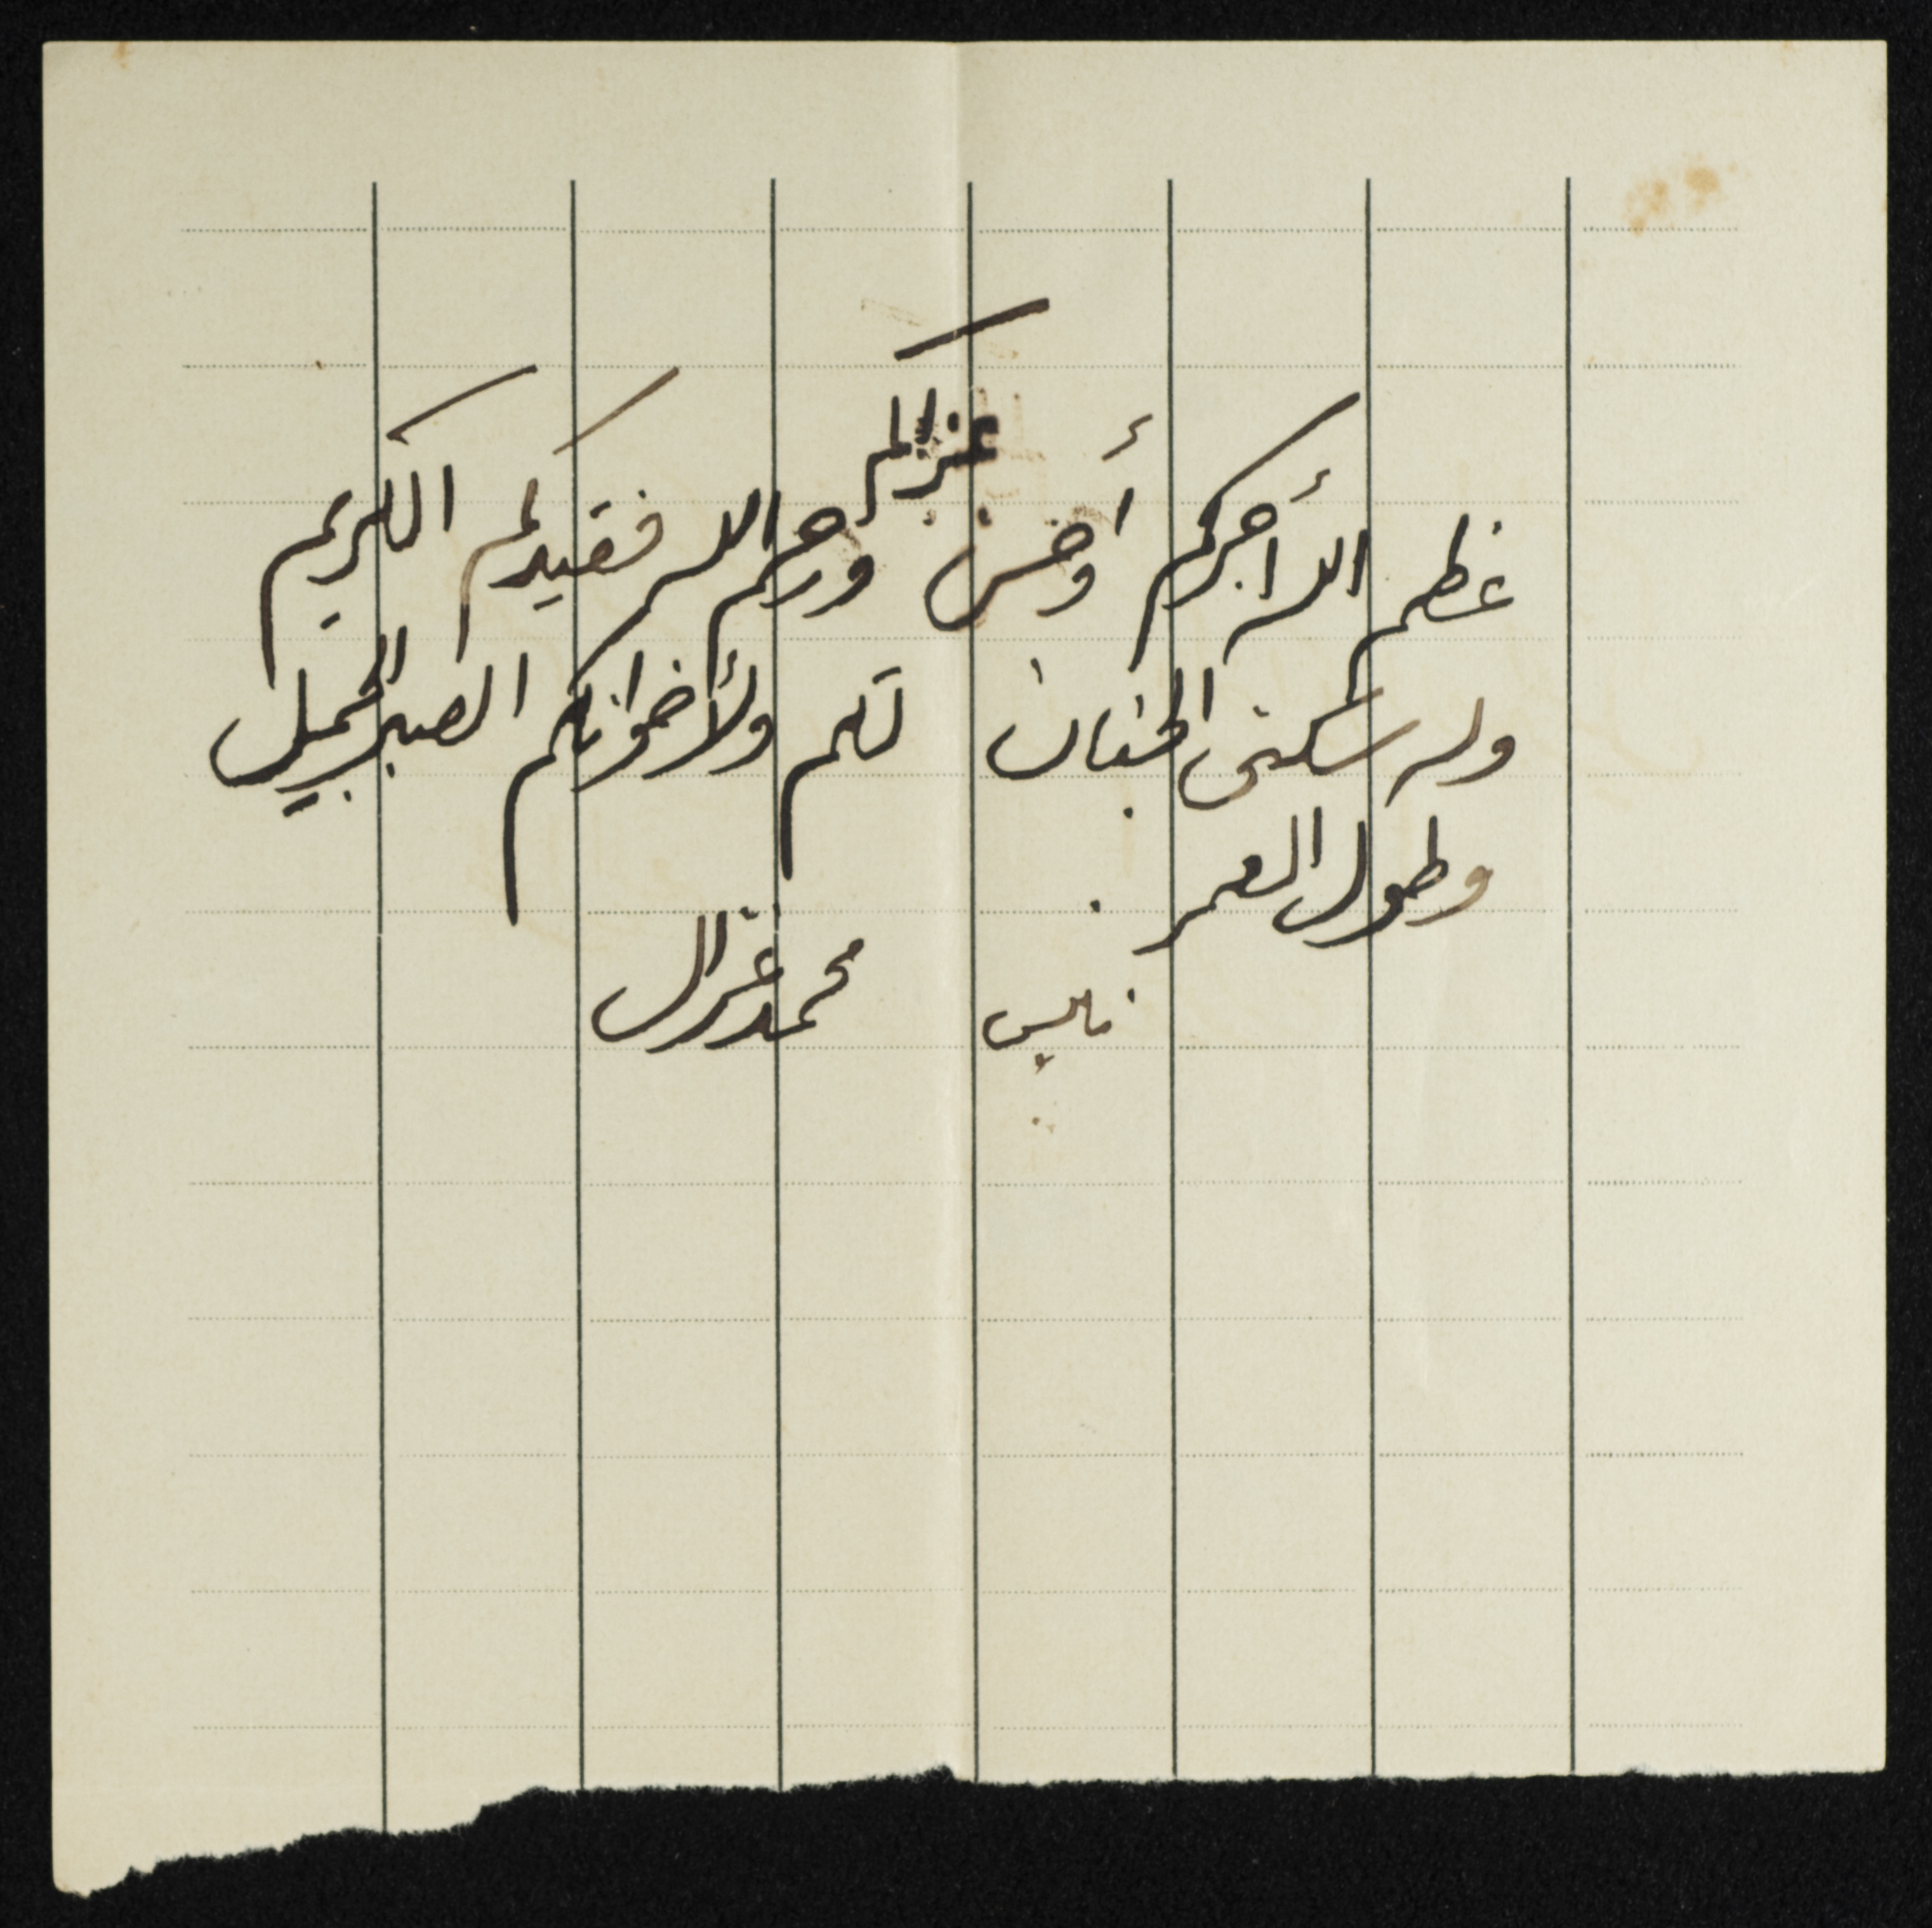 عظم الله أجركم وأحسن عزاكم ورحم الله فقيدكم الكريم
وله سكنى الجنان لكم ولأخوانكم الصبر الجميل
وطول العمر .
محمد غزال